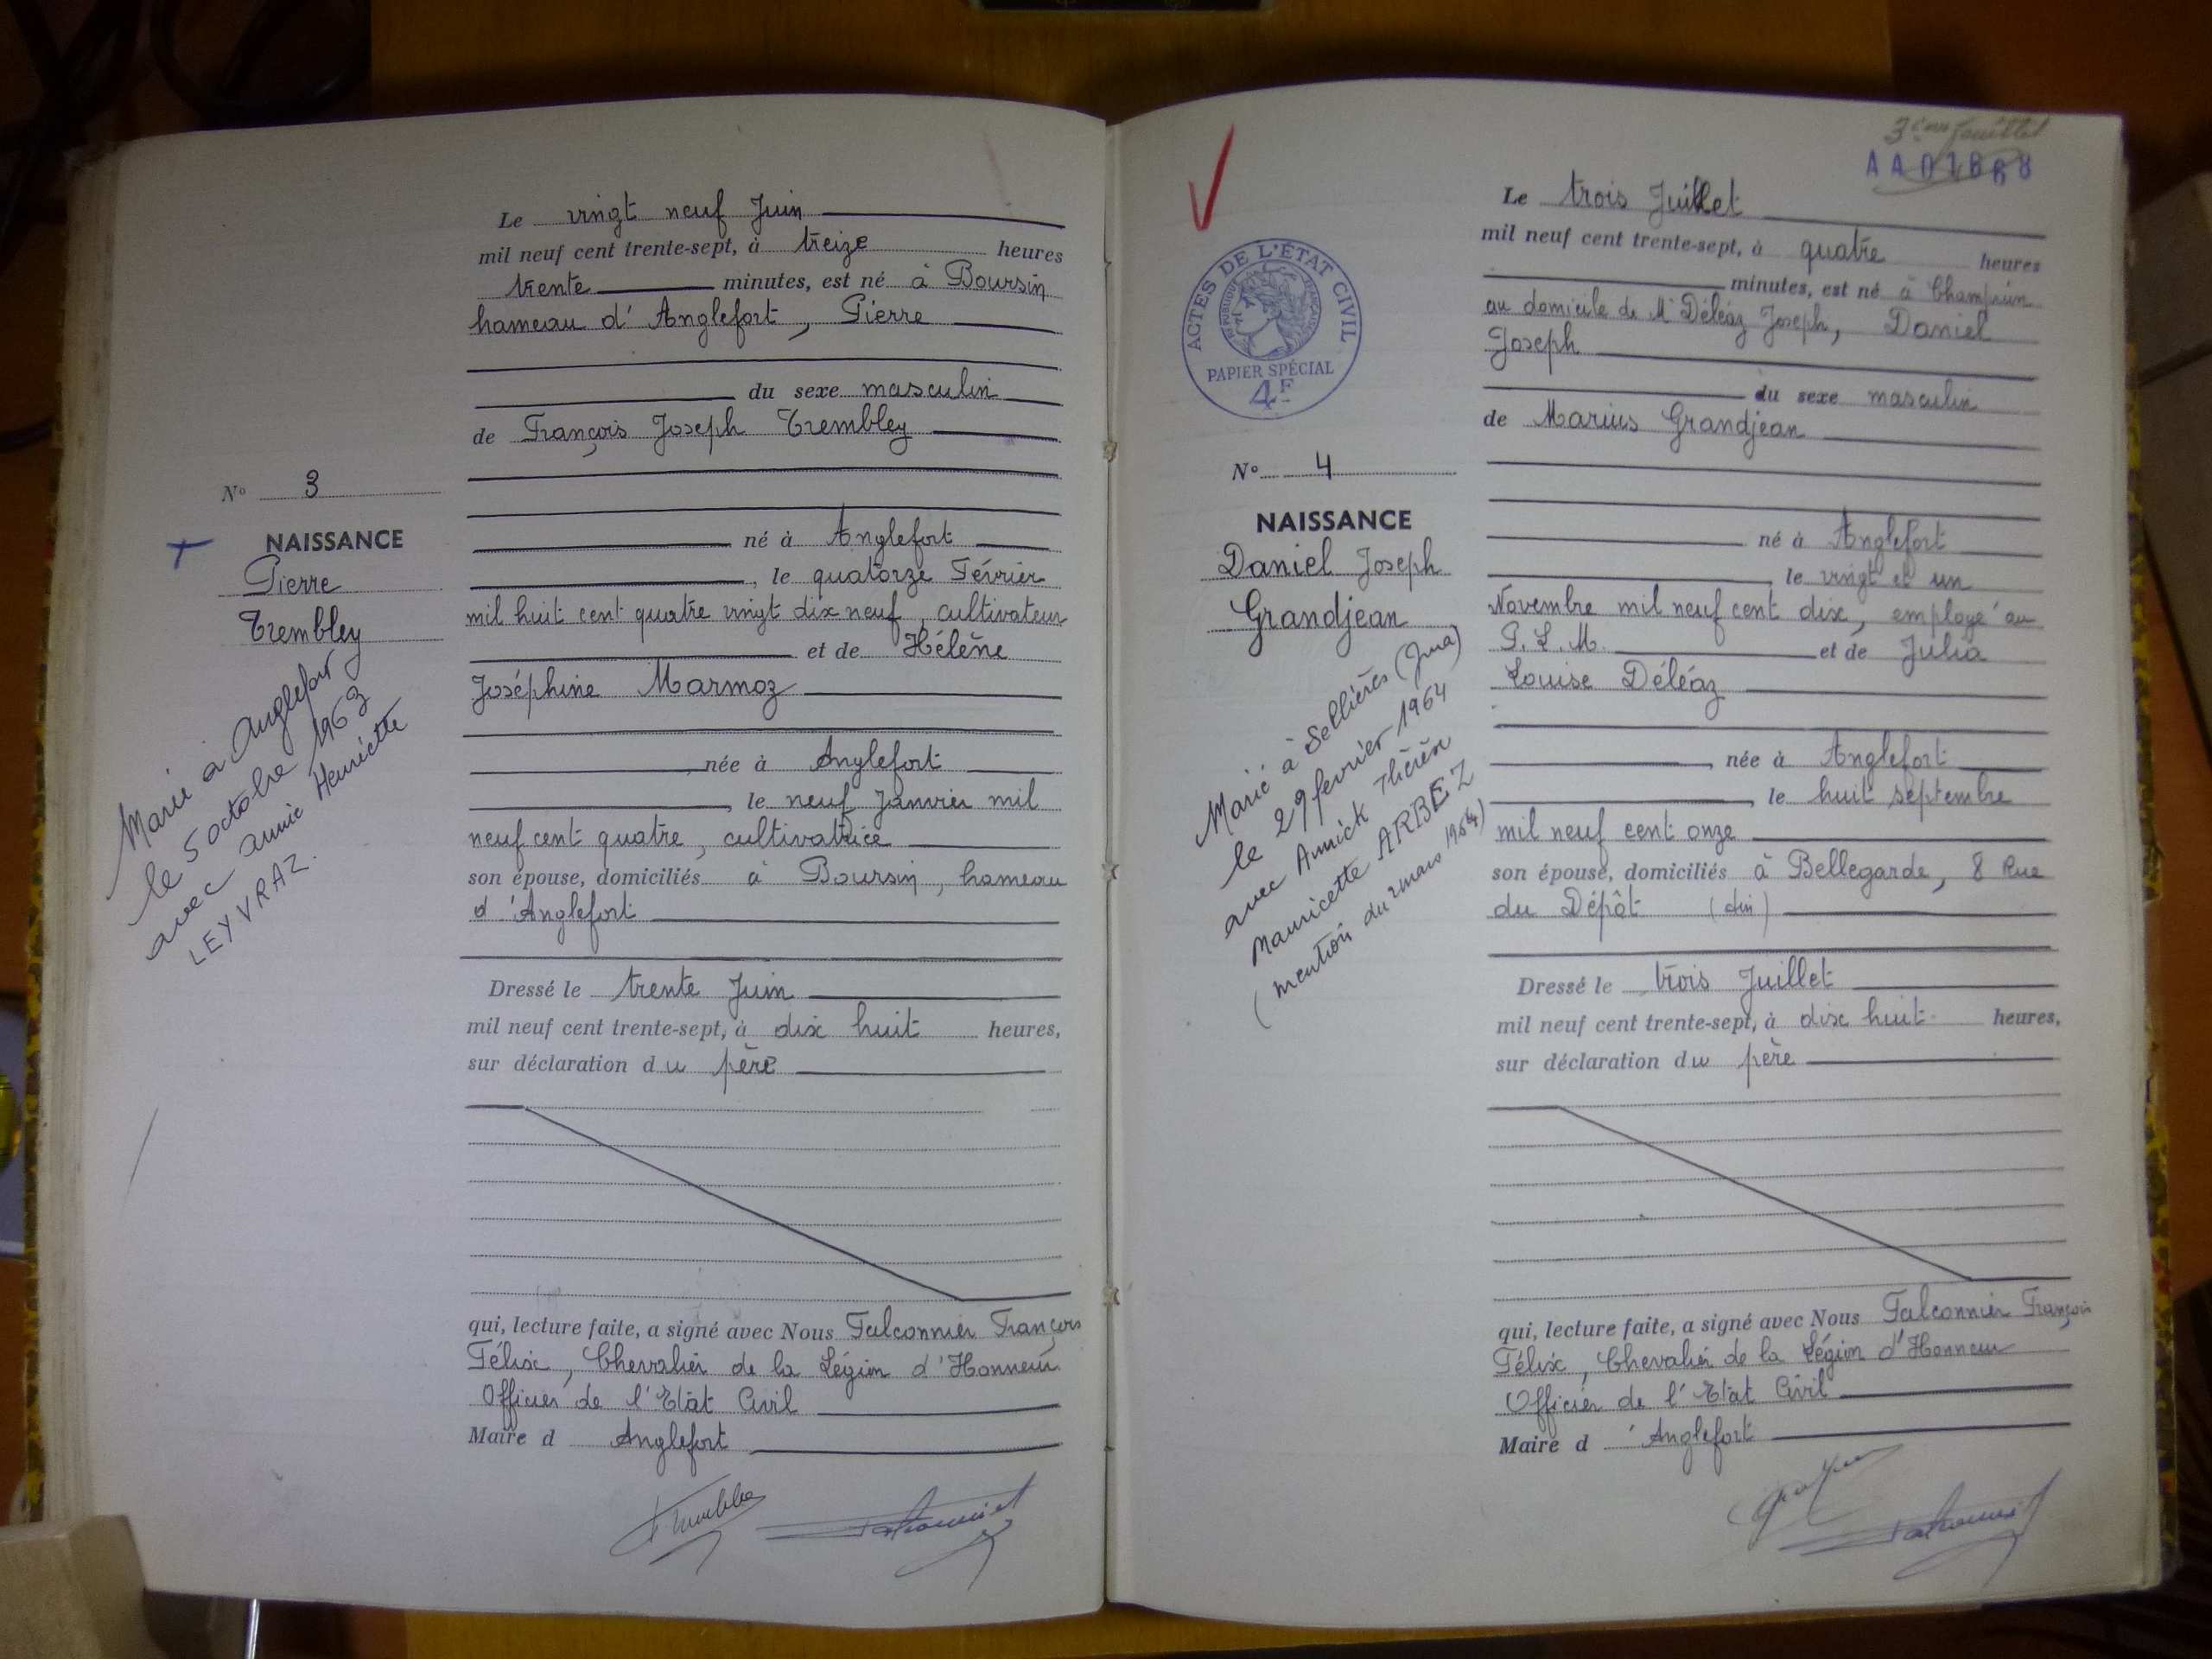 Le vingt neuf Juin
mil neuf cent trente-sept, à treize heures
trente minutes, est né à Boursin
hameau d'Anglefort, Pierre
du sexe masculin
de François Joseph Trembley
né à Anglefort
, le quatorze Février
mil huit cent quatre vingt dix neuf, cultivateur
et de Hélène
Joséphine Marmoz
née à Anglefort
, le neuf Janvier mil
neuf cent quatre, cultivatrice
son épouse, domiciliés à Boursin, hameau
d'Anglefort
Dressé le trente Juin
mil neuf cent trente-sept, à dix huit heures,
sur déclaration du père
qui, lecture faite, a signé avec Nous Falconnier François
Félix, Chevalier de la Légion d'Honneur
Officier de l'Etat Civil
Maire d Anglefort
N° 3
NAISSANCE
Pierre
Trembley
Marié à Anglefort
le 5 octobre 1963
avec Annie Henriette
LEYVRAZ.
3ème feuillet
Le trois Juillet
mil neuf cent trente-sept, à quatre heures
minutes, est né à
au domicile de Mr Déléaz Joseph, Daniel
Joseph
du sexe masculin
de Marius Grandjean
né à Anglefort
, le vingt et un
Novembre mil neuf cent dix, employé au
P.L.M. et de Julia
Louise Déléaz
, née à Anglefort
, le huit septembre
mil neuf cent onze
son épouse, domiciliés à Bellegarde, 8 Rue
du Dépôt (Ain)
Dressé le trois Juillet
mil neuf cent trente-sept, à dix huit heures,
sur déclaration du père
qui, lecture faite, a signé avec Nous Falconnier François
Félix, Chevalier de la Légion d'Honneur
Officier de l'Etat Civil
Maire d 'Anglefort
ACTES DE L'ÉTAT CIVIL
RÉPUBLIQUE FRANÇAISE
PAPIER SPÉCIAL
4F
N° 4
NAISSANCE
Daniel Joseph
Grandjean
Marié à Sellières (Jura)
le 29 février 1964
avec Annick Thérèse
Mauricette ARBEZ
(mention du 2 mars 1964)